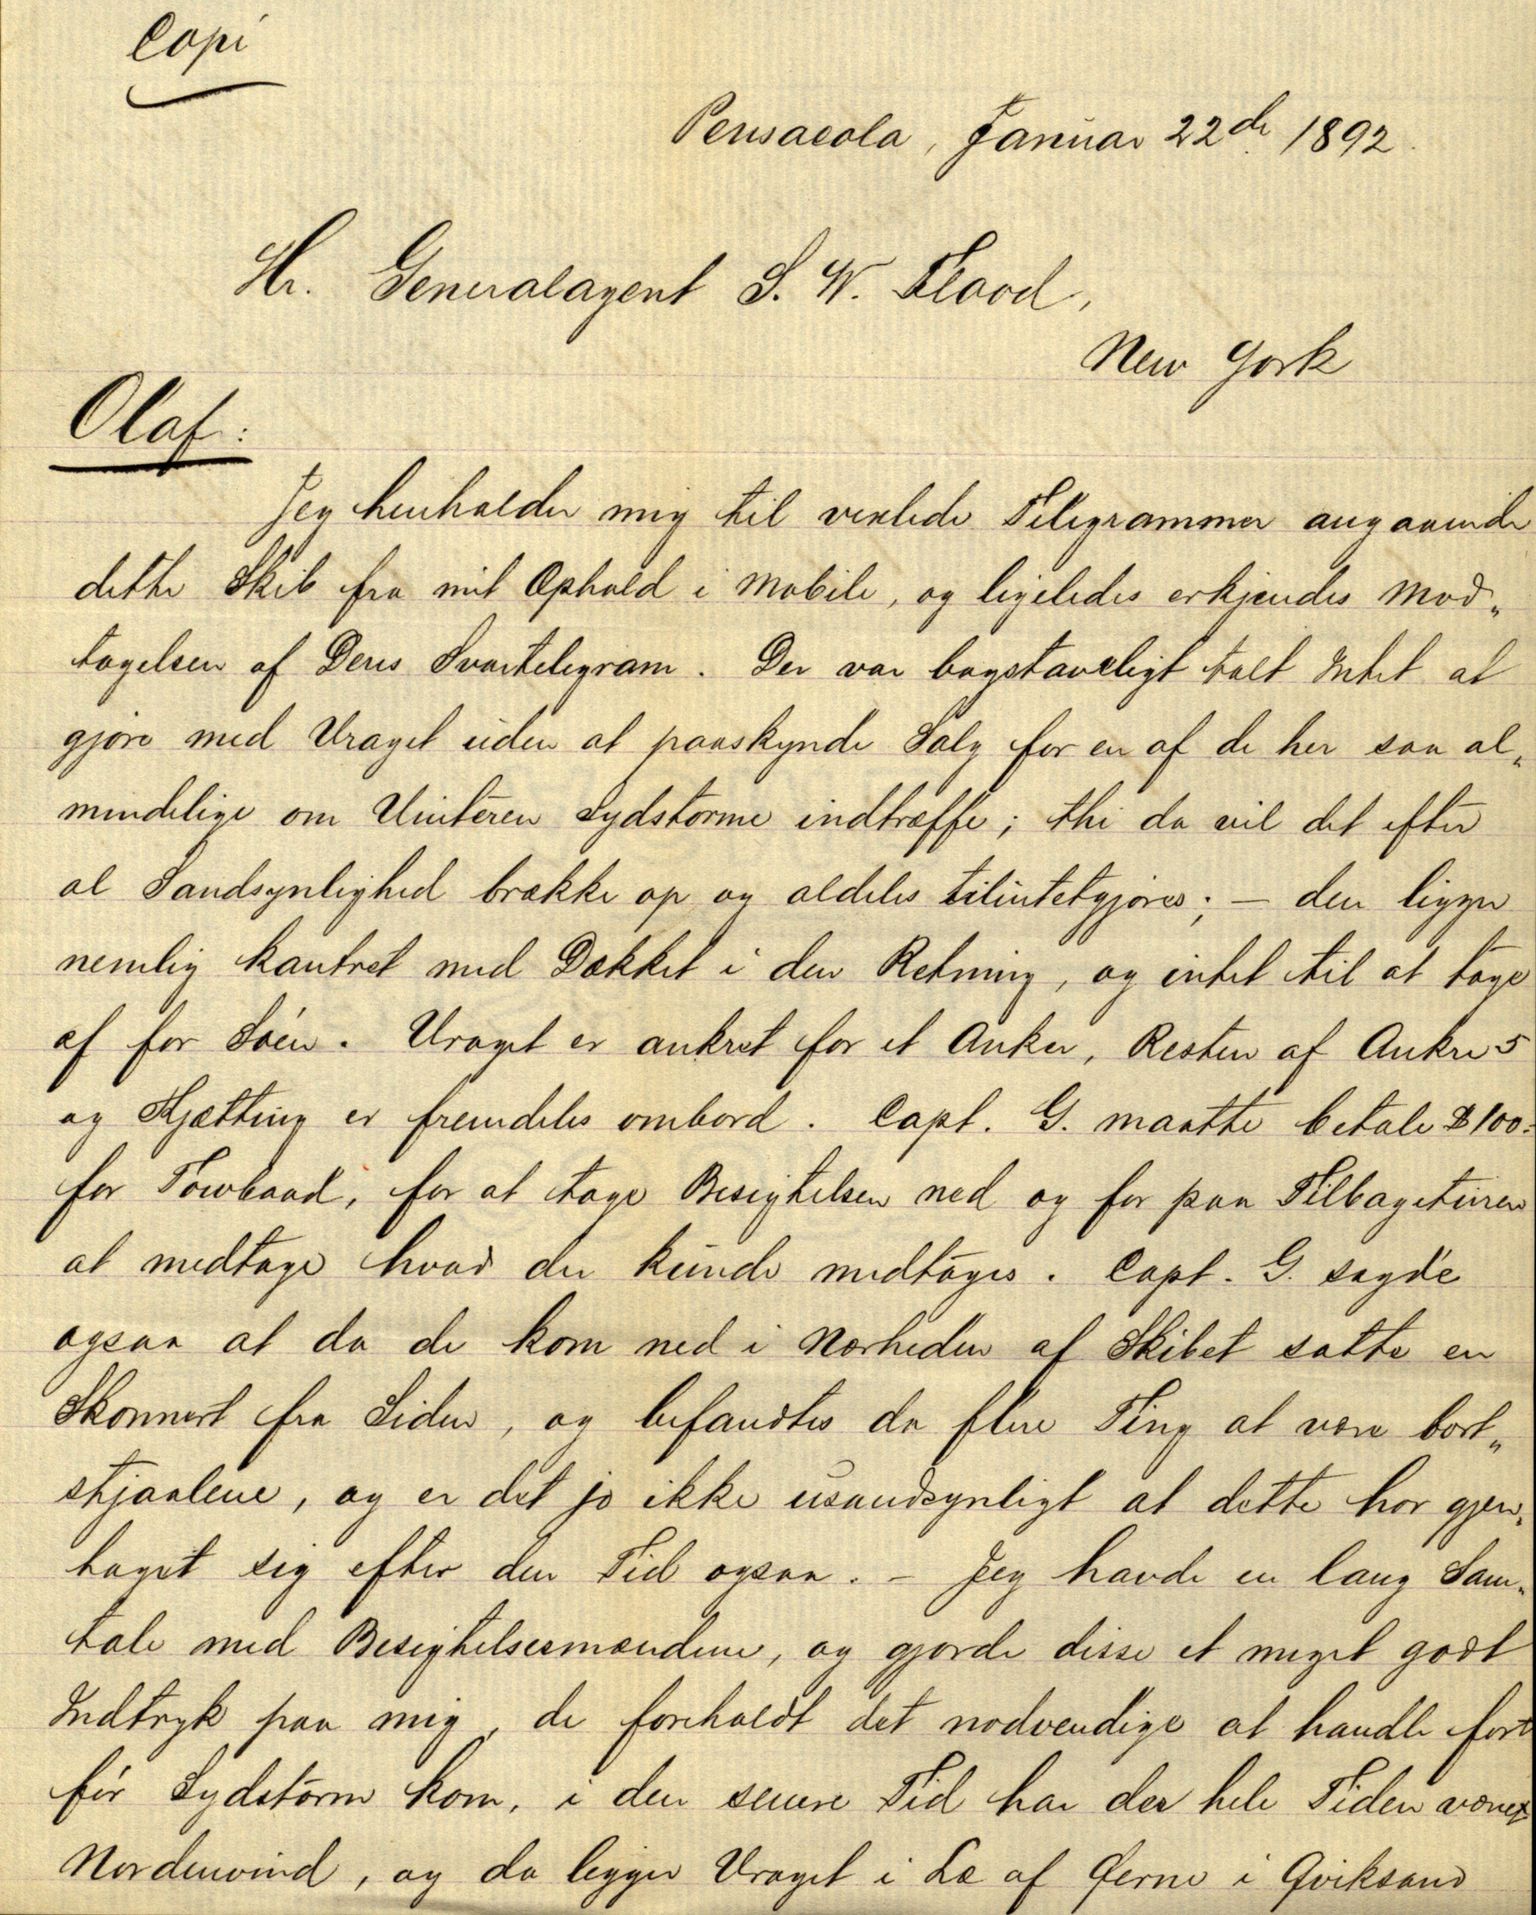 Copi
Pensacola, Januar 22de 1892.
Hr. Generalagent S. W. Flood,
New York
Olaf:
Jeg henholder mig til vexlede Telegrammer angaaende
dette Skib fra mit Ophold i Mobile, og ligeledes erkjendes Mod„
tagelsen af Deres Svartelegram. Der var bogstaveligt talt Intet at
gjøre med Vraget uden at paaskynde Salg før en af de her saa al„
mindelige om Vinteren Sydstorme indtræffe; thi da vil det efter
al Sandsynlighed brække op og aldeles tilintetgjøres; – den ligger
nemlig kantret med Dækket i den Retning, og intet til at tage
af for Søen. Vraget er ankret for et Anker, Resten af Ankre
og Kjætting er fremdeles ombord. Capt. G. maatte betale $100.
for Towbaad, for at tage Besigtelsen ned og for paa Tilbageturen
at medtage hvad der kunde medtages. Capt. G. sagde
ogsaa at da de kom ned i Nærheden af Skibet satte en
Skonnert fra Siden, og befandtes da flere Ting at være bort„
stjaalene, og er det jo ikke usandsynligt at dette har gjen„
taget sig efter den Tid ogsaa. – Jeg havde en lang Sam„
tale med Besigtelsesmændene, og gjorde disse et meget godt
Indtryk paa mig, de foreholdt det nødvendige at handle fort
før Sydstorm kom, i den senere Tid har der hele Tiden været
Nordenvind, og da ligger Vraget i Læ af Øerne i Qviksand